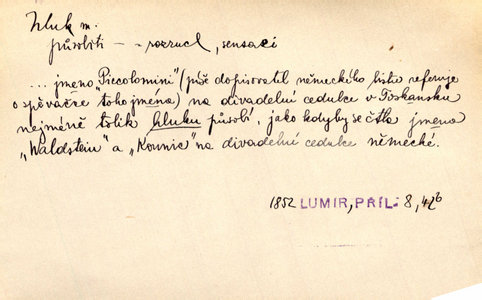 hluk m.
působiti – – rozruch, sensaci
... jméno „Piccolomini" (píše dopisovatel německého listu referuje
o zpěvačce toho jména) na divadelní cedulce v Toskansku
nejméně tolik hluku působí, jako kdyby se četla jména
„Waldstein" a „Kounic" na divadelní cedulce německé.
1852 LUMIR, PŘIL. 8, 42b